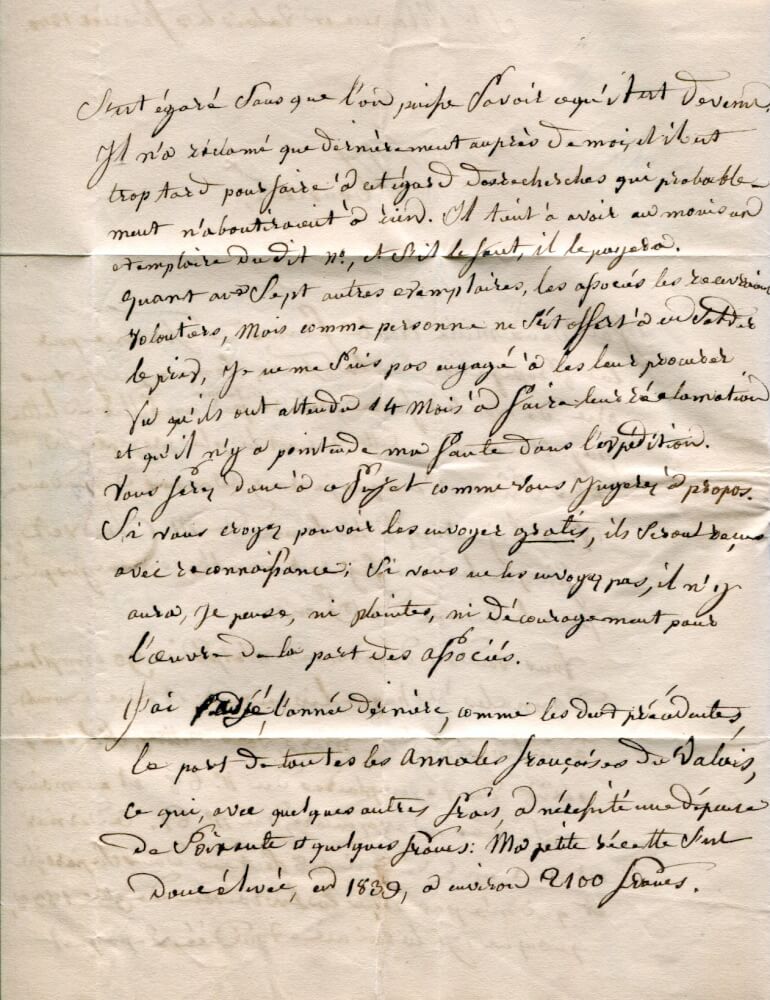 s'est égaré sans que l'on puisse savoir ce qu'il est devenu.
Il n'a réclamé que dernièrement auprès de moi, et il est
trop tard pour faire à cet égard des recherches qui probable-
ment n'aboutiraient à rien. Il tient à avoir au moins un
exemplaire du dit n°., et s'il le faut, il le payera.
quant aux sept autres exemplaires, les associés les recevraient
volontiers, mais comme personne ne s'est offert à en solder
le prix, je ne me suis pas engagé à les leur procurer
vu qu'ils ont attendu 14 mois à faire leur réclamation
et qu'il n'y a point eu de ma faute dans l'expédition.
Vous ferez donc à ce sujet comme vous jugerez à propos.
Si vous croyez pouvoir les envoyer gratis, ils seront reçus
avec reconnaissance; si vous ne les envoyez pas, il n'y
aura, je pense, ni plaintes, ni découragement pour
l'œuvre de la part des associés.
J'ai payé, l'année dernière, comme les deux précédentes,
le port de toutes les Annales françaises du Valais,
ce qui, avec quelques autres frais, a nécessité une dépense
de soixante et quelques francs: Ma petite récette s'est
donc élevée, en 1839, à environ 2100 francs.